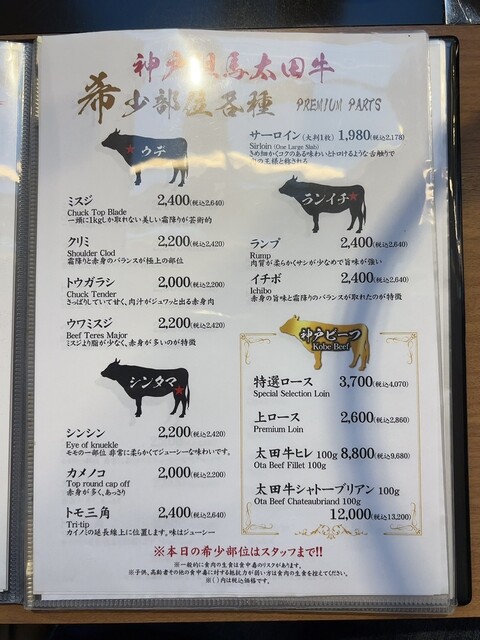 神戸但馬太田牛
希少部位各種 PREMIUM PARTS
ウデ
ミスジ 2,400(税込2,640)
Chuck Top Blade
一頭に1kgしか取れない美しい霜降りが芸術的
クリミ 2,200(税込2,420)
Shoulder Clod
霜降りと赤身のバランスが極上の部位
トウガラシ 2,000(税込2,200)
Chuck Tender
さっぱりしていて甘く、肉汁がジュワッと出る赤身肉
ウワミスジ 2,200(税込2,420)
Beef Teres Major
ミスジより脂が少なく、赤身が多いのが特徴
シンタマ
シンシン 2,200(税込2,420)
Eye of knuekle
モモの一部位 非常に柔らかくてジューシーな味わいです。
カメノコ 2,000(税込2,200)
Top round cap off
赤身が多く、あっさり
トモ三角 2,400(税込2,640)
Tri-tip
カイノミの延長線上に位置します。味はジューシー
サーロイン(大判1枚) 1,980(税込2,178)
Sirloin (One Large Slab)
きめ細かくコクのある味わいとトロけるような舌触りで
の王様と称される
ランイチ
ランプ 2,400(税込2,640)
Rump
肉質が柔らかくサシが少なめで旨味が強い
イチボ 2,400(税込2,640)
Ichibo
赤身の旨味と霜降りのバランスが取れたのが特徴
神戸ビーフ
Kobe Beef
特選ロース 3,700(税込4,070)
Special Selection Loin
上ロース 2,600(税込2,860)
Premium Loin
太田牛ヒレ 100g 8,800(税込9,680)
Ota Beef Fillet 100g
太田牛シャトーブリアン 100g
Ota Beef Chateaubriand 100g
12,000(税込13,200)
※本日の希少部位はスタッフまで!!
※一般的に食肉の生食は食中毒のリスクがあります。
※子供、高齢者その他の食中毒に対する抵抗力が弱い方は食肉の生食を控えてください。
※( )内は税込価格です。